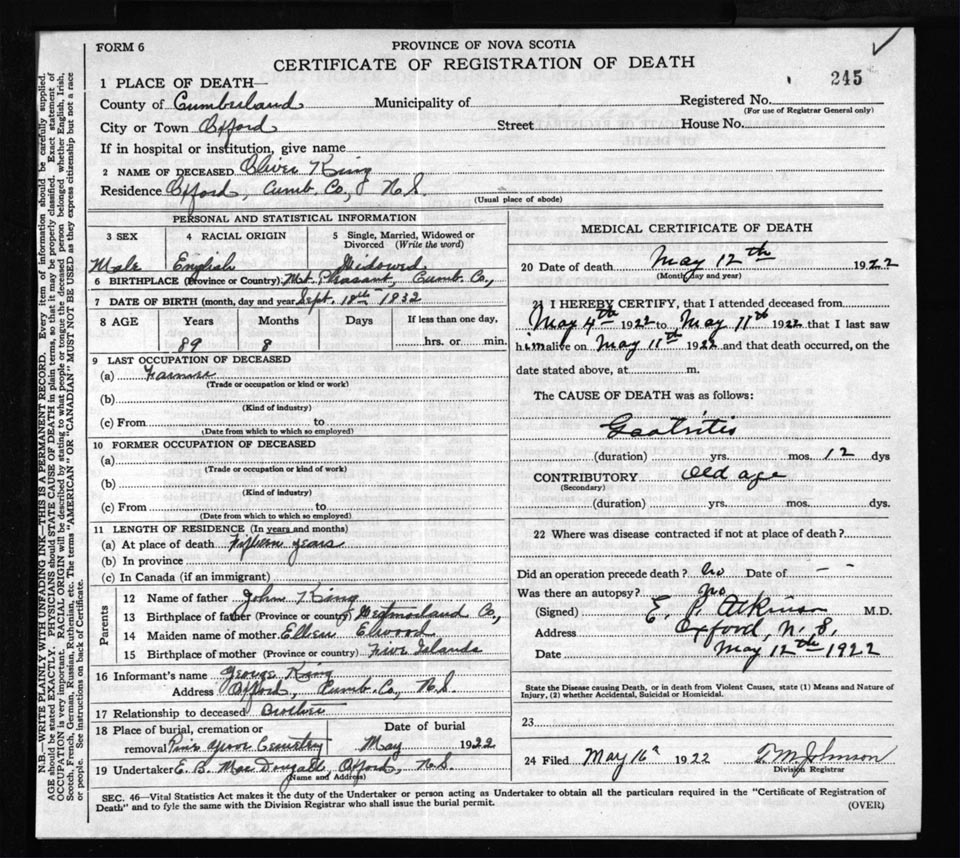 FORM 6
PROVINCE OF NOVA SCOTIA
CERTIFICATE OF REGISTRATION OF DEATH
245
1 PLACE OF DEATH—
County of Cumberland Municipality of Registered No.
(For use of Registrar General only)
City or Town Oxford Street House No.
If in hospital or institution, give name
2 NAME OF DECEASED Oliver King
Residence Oxford, Cumb. Co., N.S.
(Usual place of abode)
PERSONAL AND STATISTICAL INFORMATION
3 SEX 4 RACIAL ORIGIN 5 Single, Married, Widowed or Divorced (Write the word)
Male English Widowed
6 BIRTHPLACE (Province or Country) Mt. Pleasant, Cumb Co.,
7 DATE OF BIRTH (month, day and year) Sept. 18th 1832
8 AGE Years Months Days If less than one day,
89 8 hrs. or min.
9 LAST OCCUPATION OF DECEASED
(a) Farmer
(Trade or occupation or kind or work)
(b)
(Kind of industry)
(c) From to
(Date from which to which so employed)
10 FORMER OCCUPATION OF DECEASED
(a)
(Trade or occupation or kind of work)
(b)
(Kind of industry)
(c) From to
(Date from which to which so employed)
11 LENGTH OF RESIDENCE (In years and months)
(a) At place of death Fifteen years
(b) In province
(c) In Canada (if an immigrant)
Parents
12 Name of father John King
13 Birthplace of father (Province or country) Westmorland Co.,
14 Maiden name of mother Ellen Elwood
15 Birthplace of mother (Province or country) Five Islands
16 Informant's name George King
Address Oxford, Cumb. Co, N.S.
17 Relationship to deceased Brother
18 Place of burial, cremation or Date of burial
removal Pine Grove Cemetery May 1922
19 Undertaker E. B. MacDougall, Oxford, N.S.
(Name and Address)
MEDICAL CERTIFICATE OF DEATH
20 Date of death May 12th 1922
(Month, day and year)
21 I HEREBY CERTIFY, that I attended deceased from
May 4th 1922 to May 11th 1922 that I last saw
him alive on May 11th 1922 and that death occurred, on the
date stated above, at m.
The CAUSE OF DEATH was as follows:
Gastritis
(duration) yrs. mos. 12 dys
CONTRIBUTORY Old age
(Secondary)
(duration) yrs. mos. dys.
22 Where was disease contracted if not at place of death?
Did an operation precede death? No Date of — —
Was there an autopsy? No
(Signed) E. P. Atkinson M.D.
Address Oxford, N.S.
Date May 12th 1922
State the Disease causing Death, or in death from Violent Causes, state (1) Means and Nature of
Injury, (2) whether Accidental, Suicidal or Homicidal.
23
24 Filed May 16 1922 T. M. Johnson
Division Registrar
SEC. 46—Vital Statistics Act makes it the duty of the Undertaker or person acting as Undertaker to obtain all the particulars required in the "Certificate of Registration of
Death" and to fyle the same with the Division Registrar who shall issue the burial permit.
(OVER)
N.B.—WRITE PLAINLY WITH UNFADING INK—THIS IS A PERMANENT RECORD. Every item of information should be carefully supplied.
AGE should be stated EXACTLY. PHYSICIANS should STATE CAUSE OF DEATH in plain terms, so that it may be properly classified. Exact statement of
OCCUPATION is very important. RACIAL ORIGIN will be described by stating to what people or tongue the deceased person belonged whether English, Irish,
Scotch, French, German, Russian, Ruthenian, etc. The terms "AMERICAN" OR "CANADIAN" MUST NOT BE USED as they express citizenship but not a race
or people. See instructions on back of Certificate.